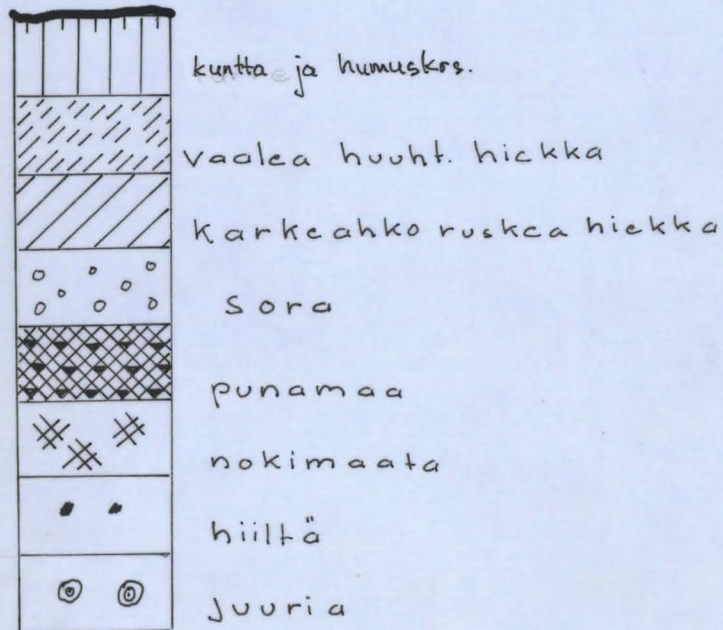 kuntta ja humuskrs.
vaalea huuht. hiekka
karkeahko ruskea hiekka
sora
punamaa
nokimaata
hiiltä
juuria